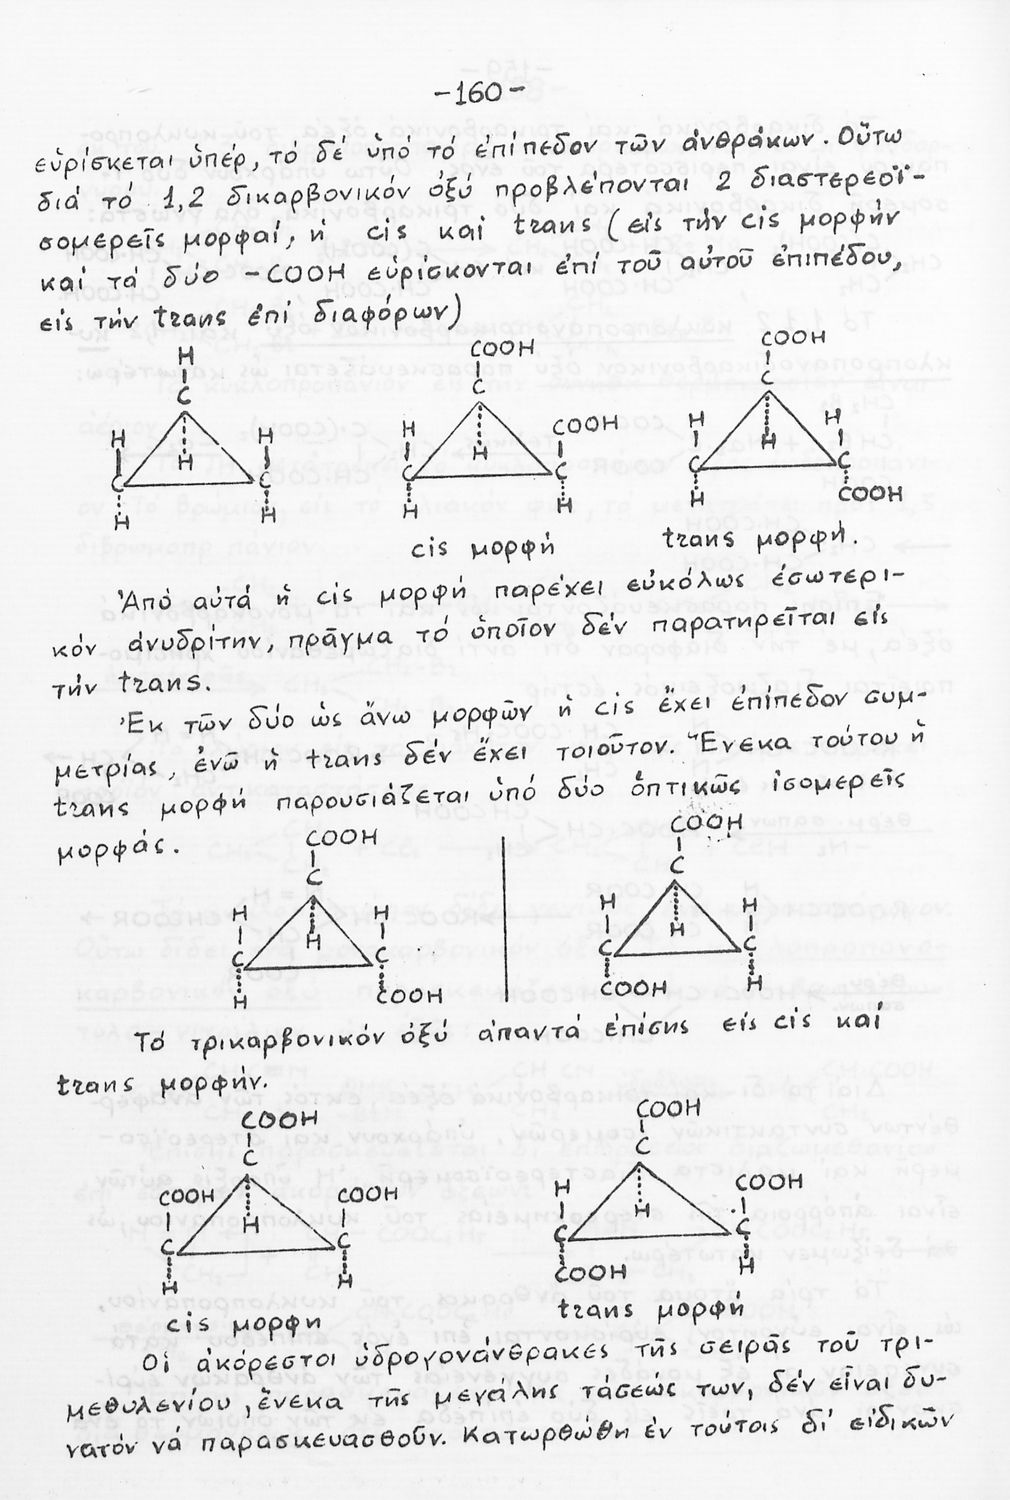 -160-
εὑρίσκεται ὑπέρ, τό δέ ὑπό τό ἐπίπεδον τῶν ἀνθράκων. Οὕτω
διά τό 1,2 δικαρβονικόν ὀξύ προβλέπονται 2 διαστερεοϊ-
σομερεῖς μορφαί, ἡ cis καί trans (εἰς τήν cis μορφήν
καί τά δύο -COOH εὑρίσκονται ἐπί τοῦ αὐτοῦ ἐπιπέδου,
εἰς τήν trans ἐπί διαφόρων)
H COOH COOH
C C C
H H H H COOH H H H H
C C C C C C
H H H H H COOH
cis μορφή trans μορφή.
Ἀπό αὐτά ἡ cis μορφή παρέχει εὐκόλως ἐσωτερι-
κόν ἀνυδρίτην, πρᾶγμα τό ὁποῖον δέν παρατηρεῖται εἰς
τήν trans.
Ἐκ τῶν δύο ὡς ἄνω μορφῶν ἡ cis ἔχει ἐπίπεδον συμ-
μετρίας, ἐνῶ ἡ trans δέν ἔχει τοιοῦτον. Ἕνεκα τούτου ἡ
trans μορφή παρουσιάζεται ὑπό δύο ὀπτικῶς ἰσομερεῖς
μορφάς.
COOH COOH
C C
H H H H H H
C C C C
H COOH COOH H
Τό τρικαρβονικόν ὀξύ ἀπαντᾶ ἐπίσης εἰς cis καί
trans μορφήν.
COOH COOH
C C
COOH H COOH H H COOH
C C C C
H H COOH H
cis μορφη trans μορφή
Οἱ ἀκόρεστοι ὑδρογονάνθρακες τῆς σειρᾶς τοῦ τρι-
μεθυλενίου, ἕνεκα τῆς μεγάλης τάσεώς των, δέν εἶναι δυ-
νατόν νά παρασκευασθοῦν. Κατωρθώθη ἐν τούτοις δι' εἰδικῶν